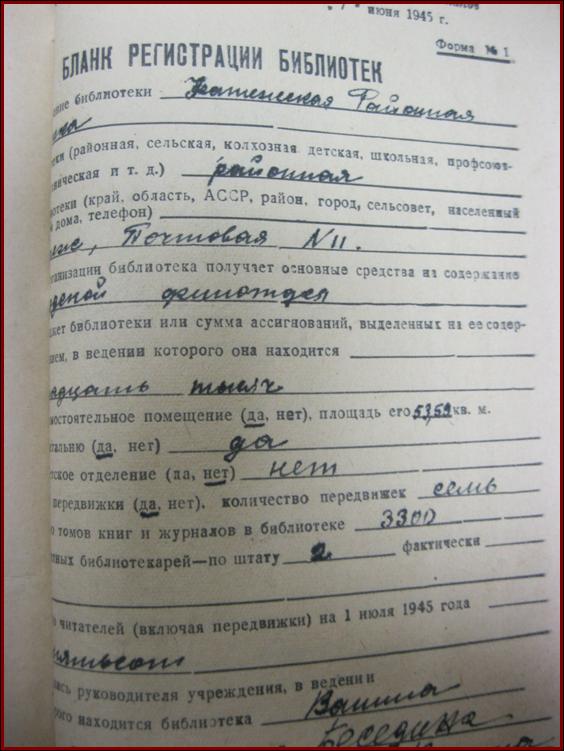 июня 1945 г.
Форма № 1
БЛАНК РЕГИСТРАЦИИ БИБЛИОТЕК
ение библиотеки Районная
еки (районная, сельская, колхозная детская, школьная, профсоюз-
ническая и т. д.) районная
иотеки (край, область, АССР, район, город, сельсовет, населенный
й дома, телефон)
Почтовая N 11.
рганизации библиотека получает основные средства на содержание
джет библиотеки или сумма ассигнований, выделенных на ее содер-
нием, в ведении которого она находится
адцать тысяч
мостоятельное помещение (да, нет), площадь его 53,59 кв. м.
тальню (да, нет) да
тское отделение (да, нет) нет
передвижки (да, нет), количество передвижек семь
о томов книг и журналов в библиотеке 3300
тных библиотекарей—по штату 2 фактически
о читателей (включая передвижки) на 1 июля 1945 года
пись руководителя учреждения, в ведении
рого находится библиотека